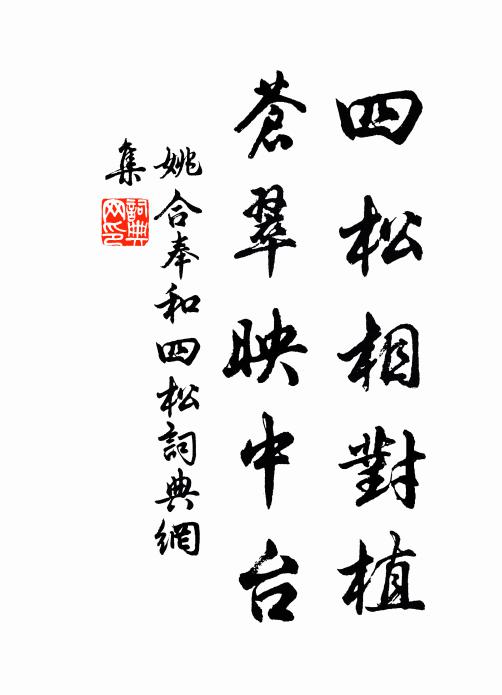 四松相對植
蒼翠映中台
姚合奉和四松詞典網
集
詞典
网印